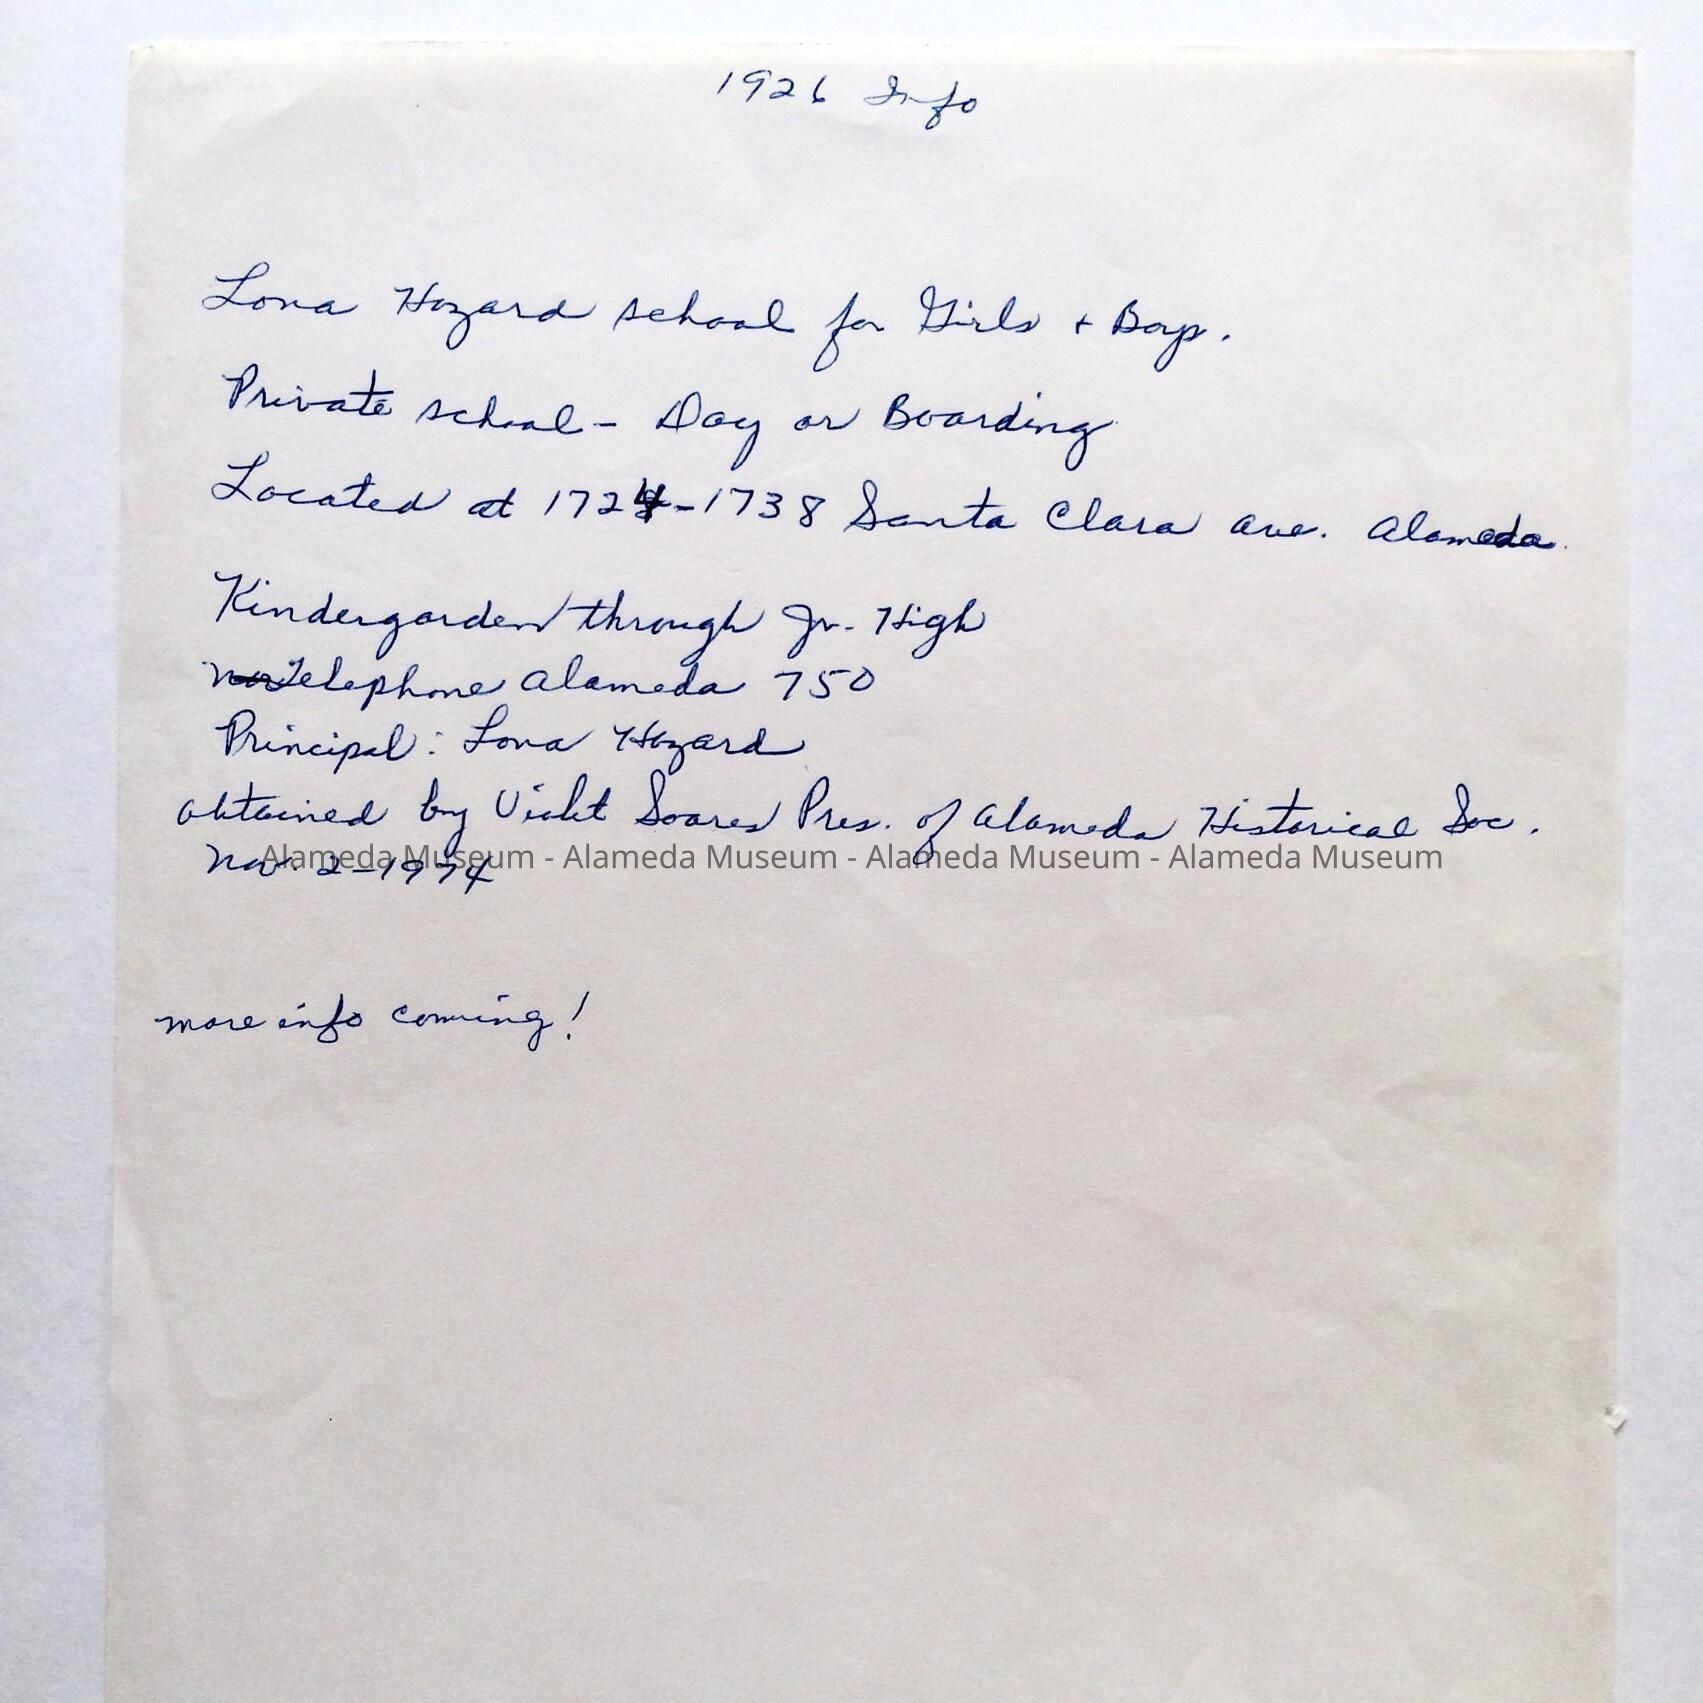 1926 Info
Lona Hozard school for Girls + Boys.
Private school - Day or Boarding
Located at 1724-1738 Santa Clara Ave. Alameda.
Kindergarden through Jr. High
Telephone Alameda 750
Principal: Lona Hozard
obtained by Violet Soares Pres. of Alameda Historical Soc.
Nov. 2-1974
Alameda Museum - Alameda Museum - Alameda Museum - Alameda Museum
more info coming!